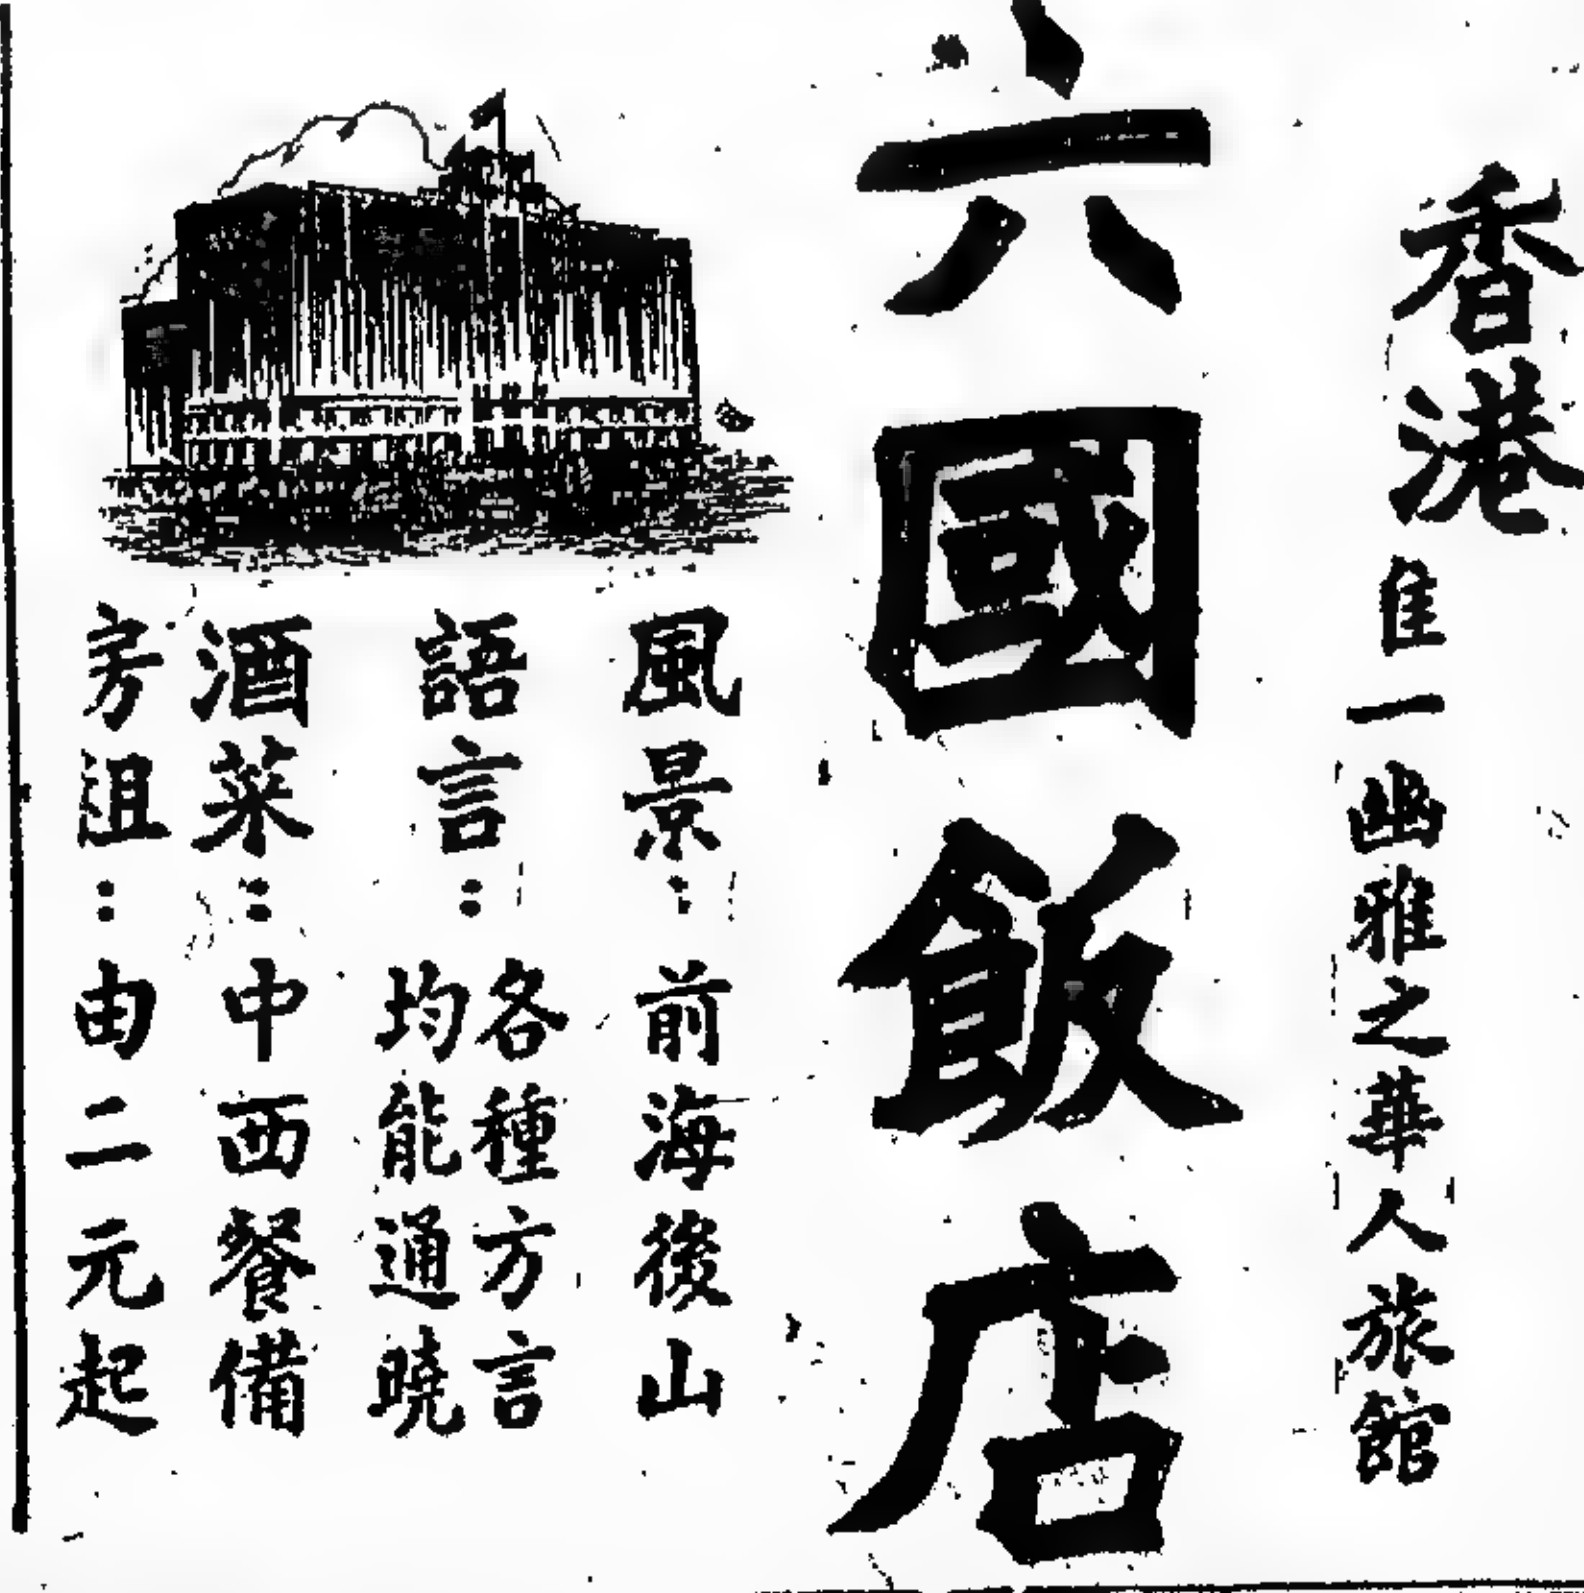 香港
唯一幽雅之華人旅館
六國飯店
風景：前海後山
語言：各種方言
均能通曉
酒菜：中西餐備
房租：由二元起